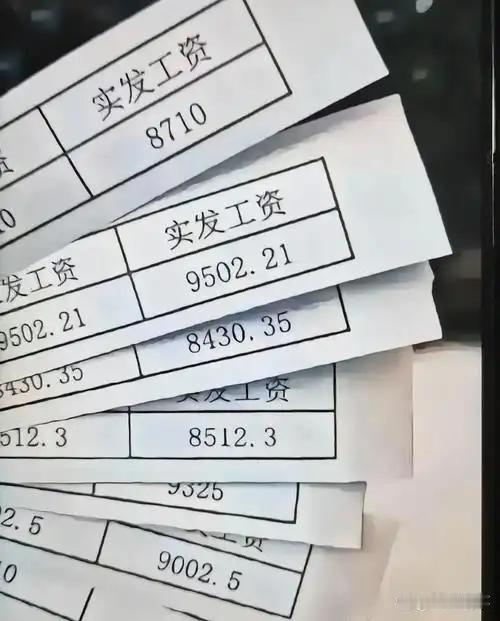 实发工资
8710
实发工资
9502.21
发工资
9502.21
8430.35
8430.35
实发工资
512.3 8512.3
9325
2.5
9002.5